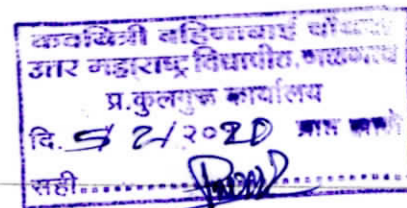 कवयित्री बहिणाबाई चौधरी
उत्तर महाराष्ट्र विद्यापीठ, जळगांव
प्र.कुलगुरू कार्यालय
दि. 5/2/२०20 प्राप्त
सही